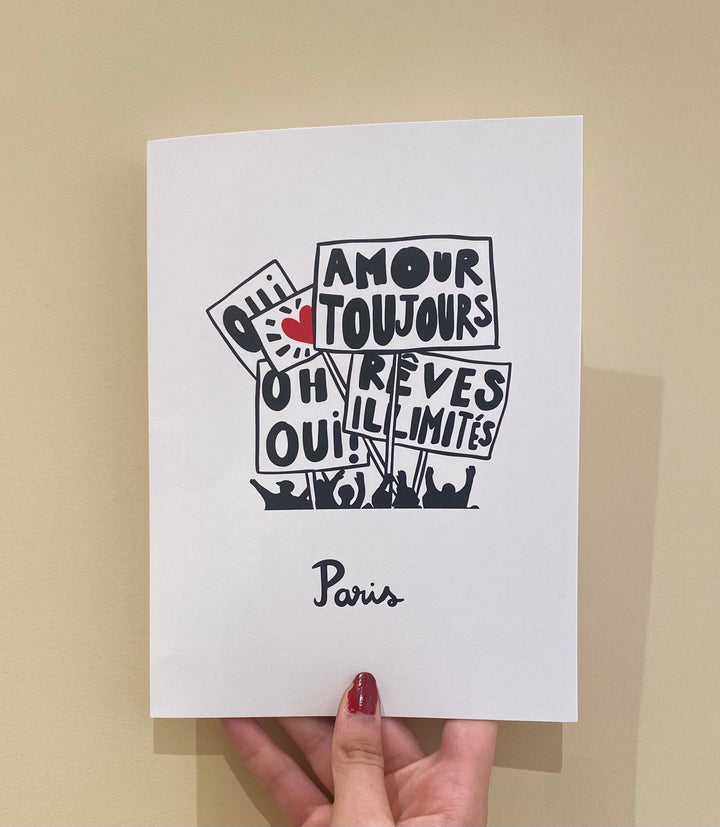 Oui
AMOUR
TOUJOURS
OH
OUi!
RÊVES
ILLIMITÉS
Paris